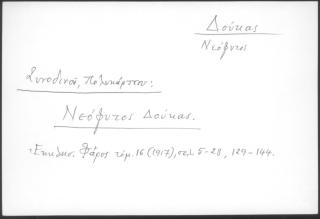 Δούκας
Νεόφυτος
Συνοδινοῦ, Πολυκάρπου:
Νεόφυτος Δούκας.
Ἐκκλησ. Φάρος τόμ. 16 (1917), σελ. 5-28, 129-144.